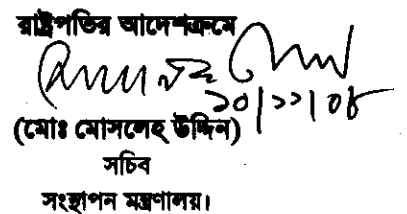 রাষ্ট্রপতির আদেশক্রমে
১০/১১/০৪
(মোঃ মোসলেহ উদ্দিন)
সচিব
সংস্থাপন মন্ত্রণালয়।